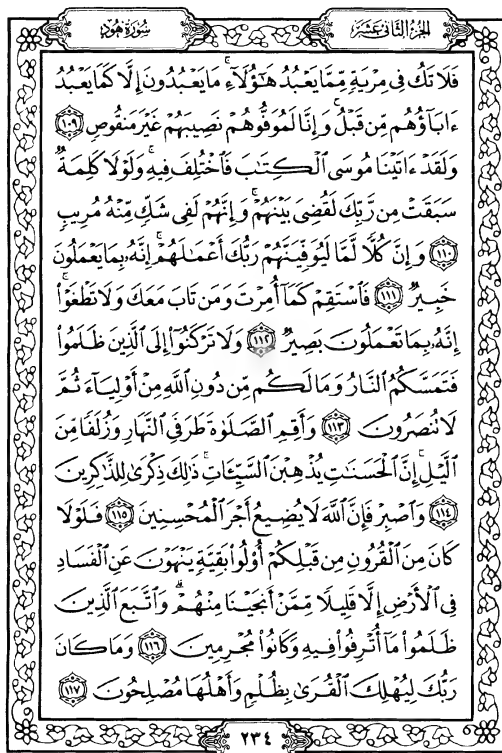 سُورَةُ هُودٍ
الجُزْءُ الثَّانِى عَشَرَ
فَلَا تَكُ فِى مِرْيَةٍ مِّمَّا يَعْبُدُ هَٰٓؤُلَآءِ ۚ مَا يَعْبُدُونَ إِلَّا كَمَا يَعْبُدُ
ءَابَآؤُهُم مِّن قَبْلُ ۚ وَإِنَّا لَمُوَفُّوهُمْ نَصِيبَهُمْ غَيْرَ مَنقُوصٍ ١٠٩
وَلَقَدْ ءَاتَيْنَا مُوسَى ٱلْكِتَٰبَ فَٱخْتُلِفَ فِيهِ ۚ وَلَوْلَا كَلِمَةٌ
سَبَقَتْ مِن رَّبِّكَ لَقُضِىَ بَيْنَهُمْ ۚ وَإِنَّهُمْ لَفِى شَكٍّ مِّنْهُ مُرِيبٍ
١١٠ وَإِنَّ كُلًّا لَّمَّا لَيُوَفِّيَنَّهُمْ رَبُّكَ أَعْمَٰلَهُمْ ۚ إِنَّهُۥ بِمَا يَعْمَلُونَ
خَبِيرٌ ١١١ فَٱسْتَقِمْ كَمَآ أُمِرْتَ وَمَن تَابَ مَعَكَ وَلَا تَطْغَوْا۟ ۚ
إِنَّهُۥ بِمَا تَعْمَلُونَ بَصِيرٌ ١١٢ وَلَا تَرْكَنُوٓا۟ إِلَى ٱلَّذِينَ ظَلَمُوا۟
فَتَمَسَّكُمُ ٱلنَّارُ وَمَا لَكُم مِّن دُونِ ٱللَّهِ مِنْ أَوْلِيَآءَ ثُمَّ
لَا تُنصَرُونَ ١١٣ وَأَقِمِ ٱلصَّلَوٰةَ طَرَفَىِ ٱلنَّهَارِ وَزُلَفًا مِّنَ
ٱلَّيْلِ ۚ إِنَّ ٱلْحَسَنَٰتِ يُذْهِبْنَ ٱلسَّيِّـَٔاتِ ۚ ذَٰلِكَ ذِكْرَىٰ لِلذَّٰكِرِينَ
١١٤ وَٱصْبِرْ فَإِنَّ ٱللَّهَ لَا يُضِيعُ أَجْرَ ٱلْمُحْسِنِينَ ١١٥ فَلَوْلَا
كَانَ مِنَ ٱلْقُرُونِ مِن قَبْلِكُمْ أُو۟لُوا۟ بَقِيَّةٍ يَنْهَوْنَ عَنِ ٱلْفَسَادِ
فِى ٱلْأَرْضِ إِلَّا قَلِيلًا مِّمَّنْ أَنجَيْنَا مِنْهُمْ ۗ وَٱتَّبَعَ ٱلَّذِينَ
ظَلَمُوا۟ مَآ أُتْرِفُوا۟ فِيهِ وَكَانُوا۟ مُجْرِمِينَ ١١٦ وَمَا كَانَ
رَبُّكَ لِيُهْلِكَ ٱلْقُرَىٰ بِظُلْمٍ وَأَهْلُهَا مُصْلِحُونَ ١١٧
٢٣٤